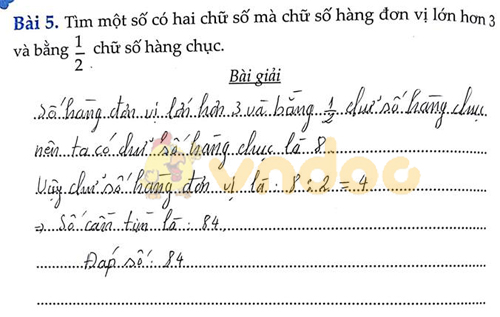 Bài 5. Tìm một số có hai chữ số mà chữ số hàng đơn vị lớn hơn 3
và bằng 1/2 chữ số hàng chục.
Bài giải
Số hàng đơn vị lớn hơn 3 và bằng 1/2 chữ số hàng chục
nên ta có chữ số hàng chục là 8
Vậy chữ số hàng đơn vị là: 8 : 2 = 4
⇒ Số cần tìm là: 84
Đáp số: 84
vndoc